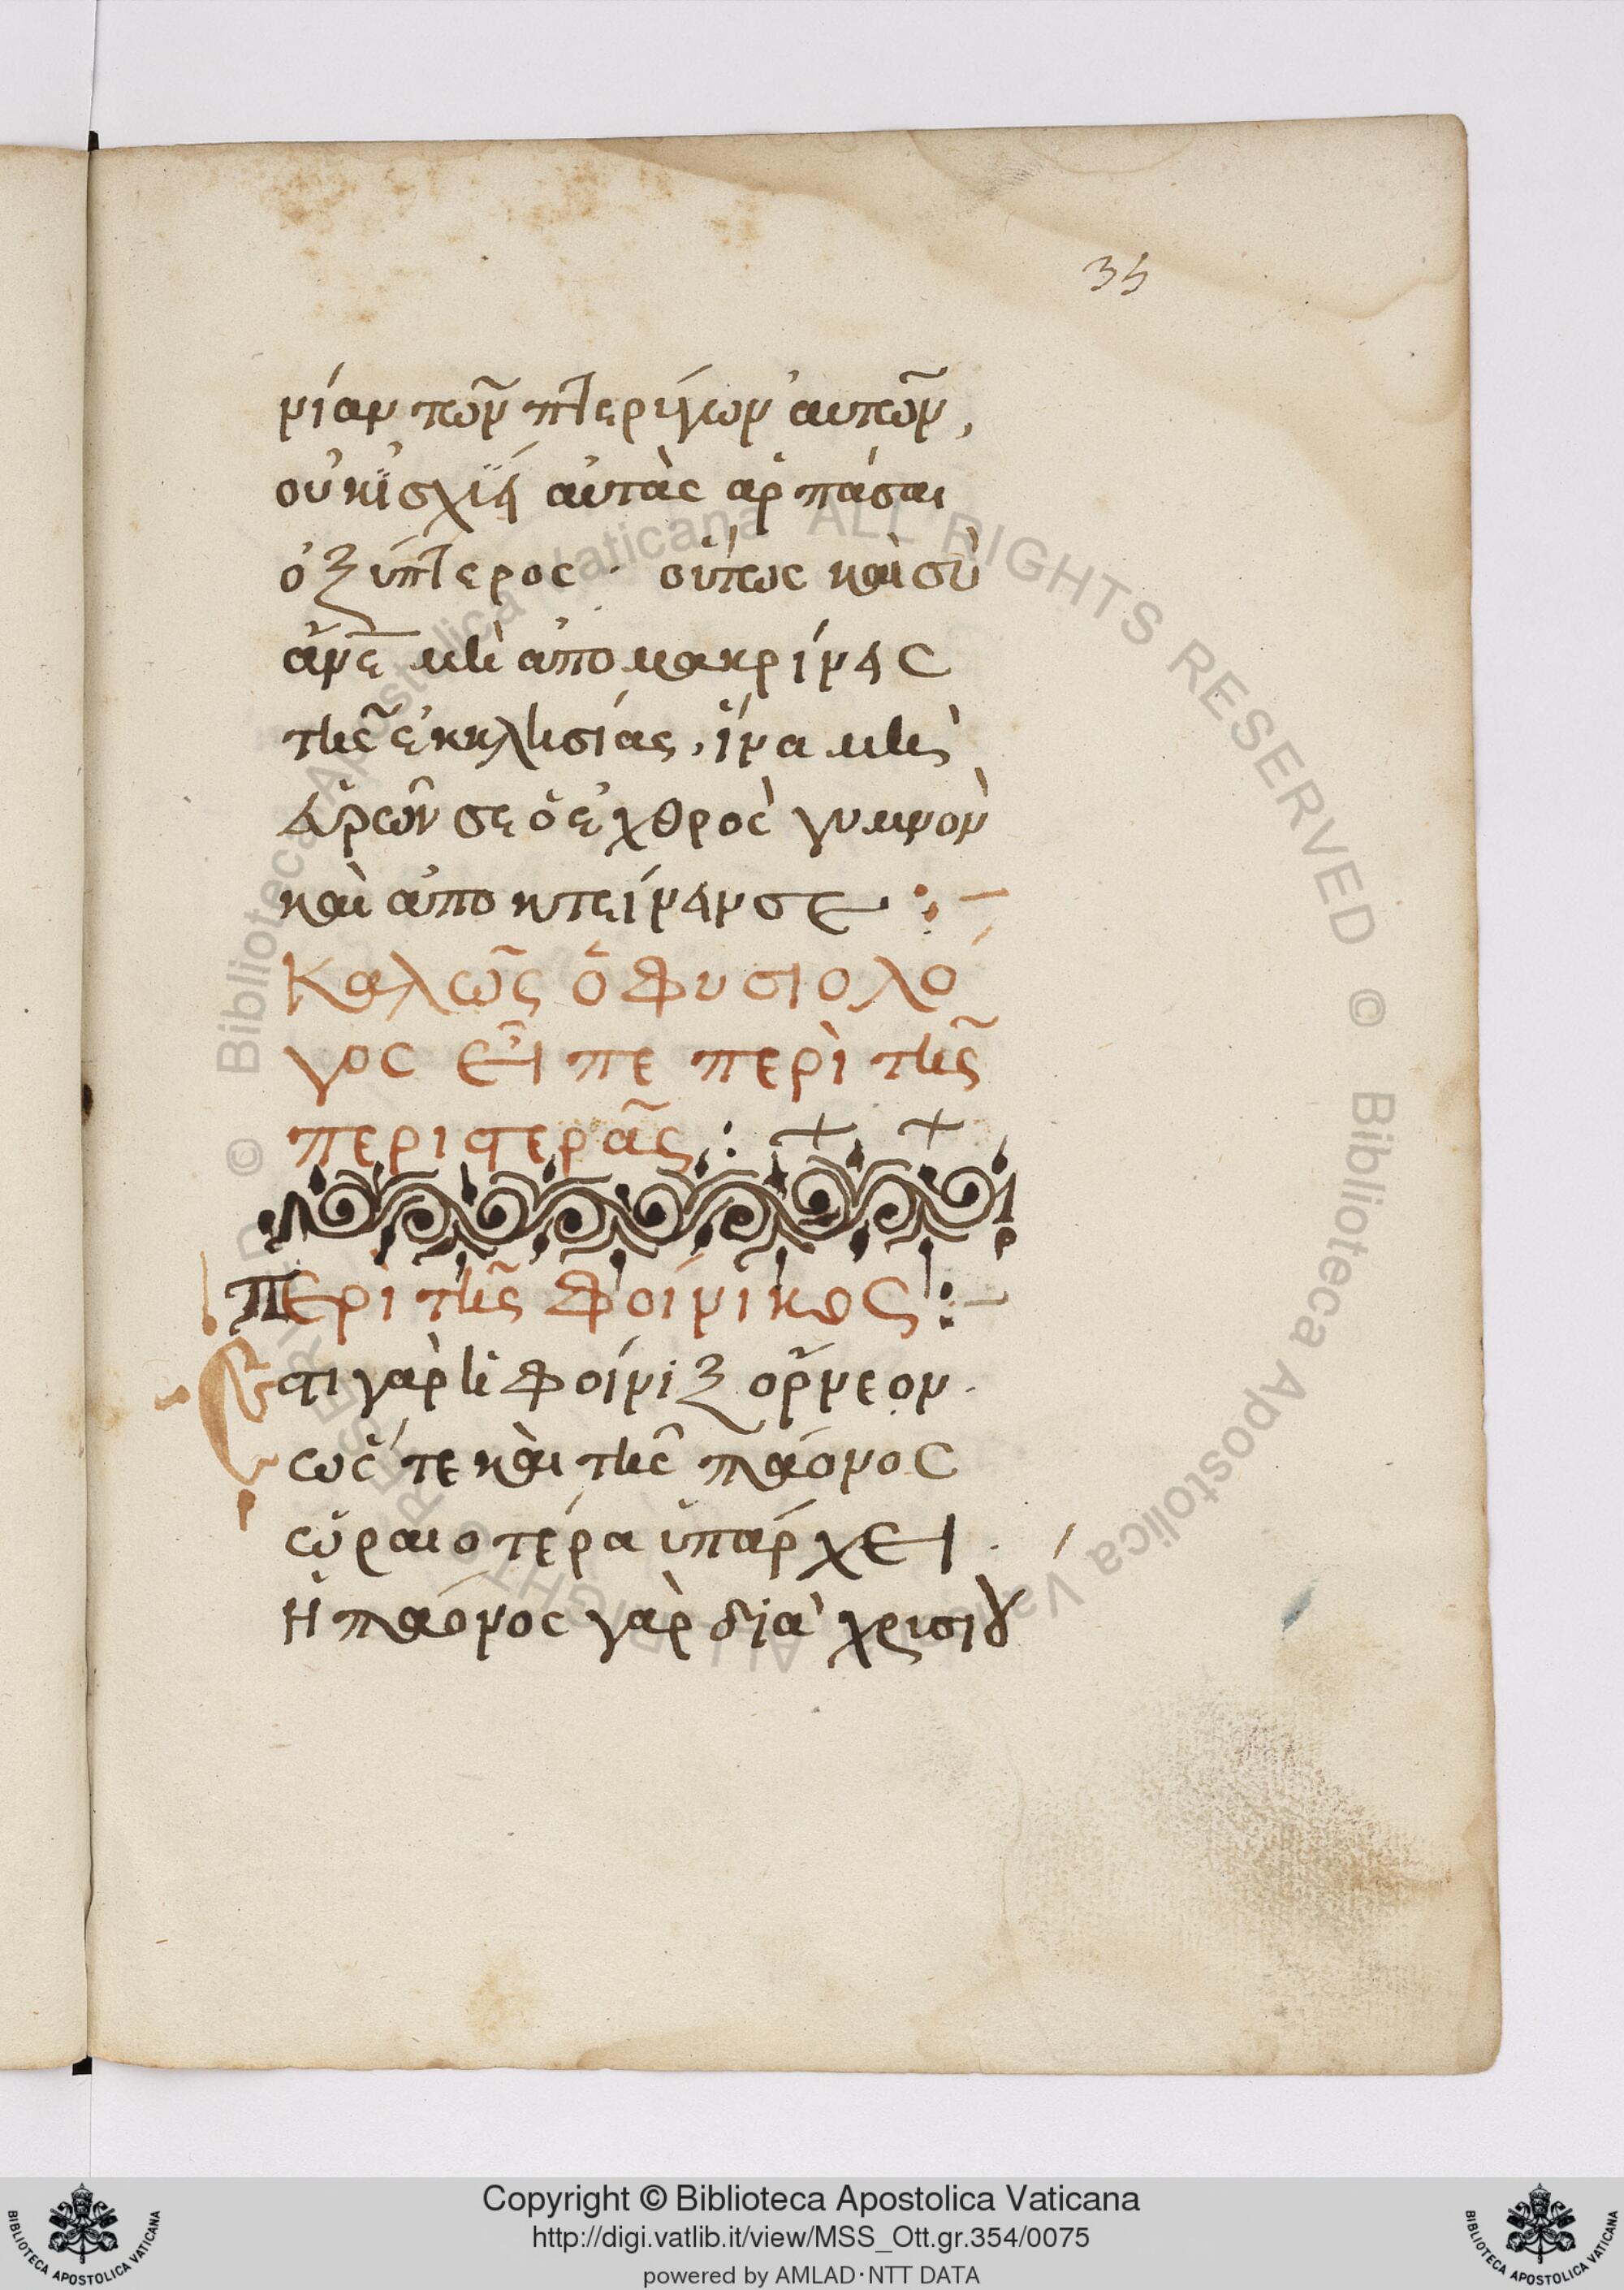 35
νίαν τῶν πτερύγων αὐτῶν,
οὐκ ἰσχύει αὐτὰς ἁρπάσαι
ὀξύπτερος · οὕτως καὶ σὺ
ἄνε μὴ ἀπομακρίνεις
τῆς ἐκκλησίας, ἵνα μὴ
εὑρών σε ὁ ἐχθρὸς γυμνὸν
καὶ ἀποκτείνει σε :–
Καλῶς ὁ φυσιολό
γος εἶπε περὶ τῆς
περιστερᾶς : + +
Περὶ τῆς φοίνικος :–
Ἔστι γὰρ ἡ φοίνιξ ὄρνεον ·
ὥς τε καὶ τῆς ταόνος
ὡραιοτέρα ὑπάρχει ·
Ἡ ταόνος γὰρ διὰ χρισίου
© Biblioteca Apostolica Vaticana ALL RIGHTS RESERVED © Biblioteca Apostolica Vaticana ALL RIGHTS RESERVED
Copyright © Biblioteca Apostolica Vaticana
http://digi.vatlib.it/view/MSS_Ott.gr.354/0075
powered by AMLAD·NTT DATA
BIBLIOTECA APOSTOLICA VATICANA
BIBLIOTECA APOSTOLICA VATICANA